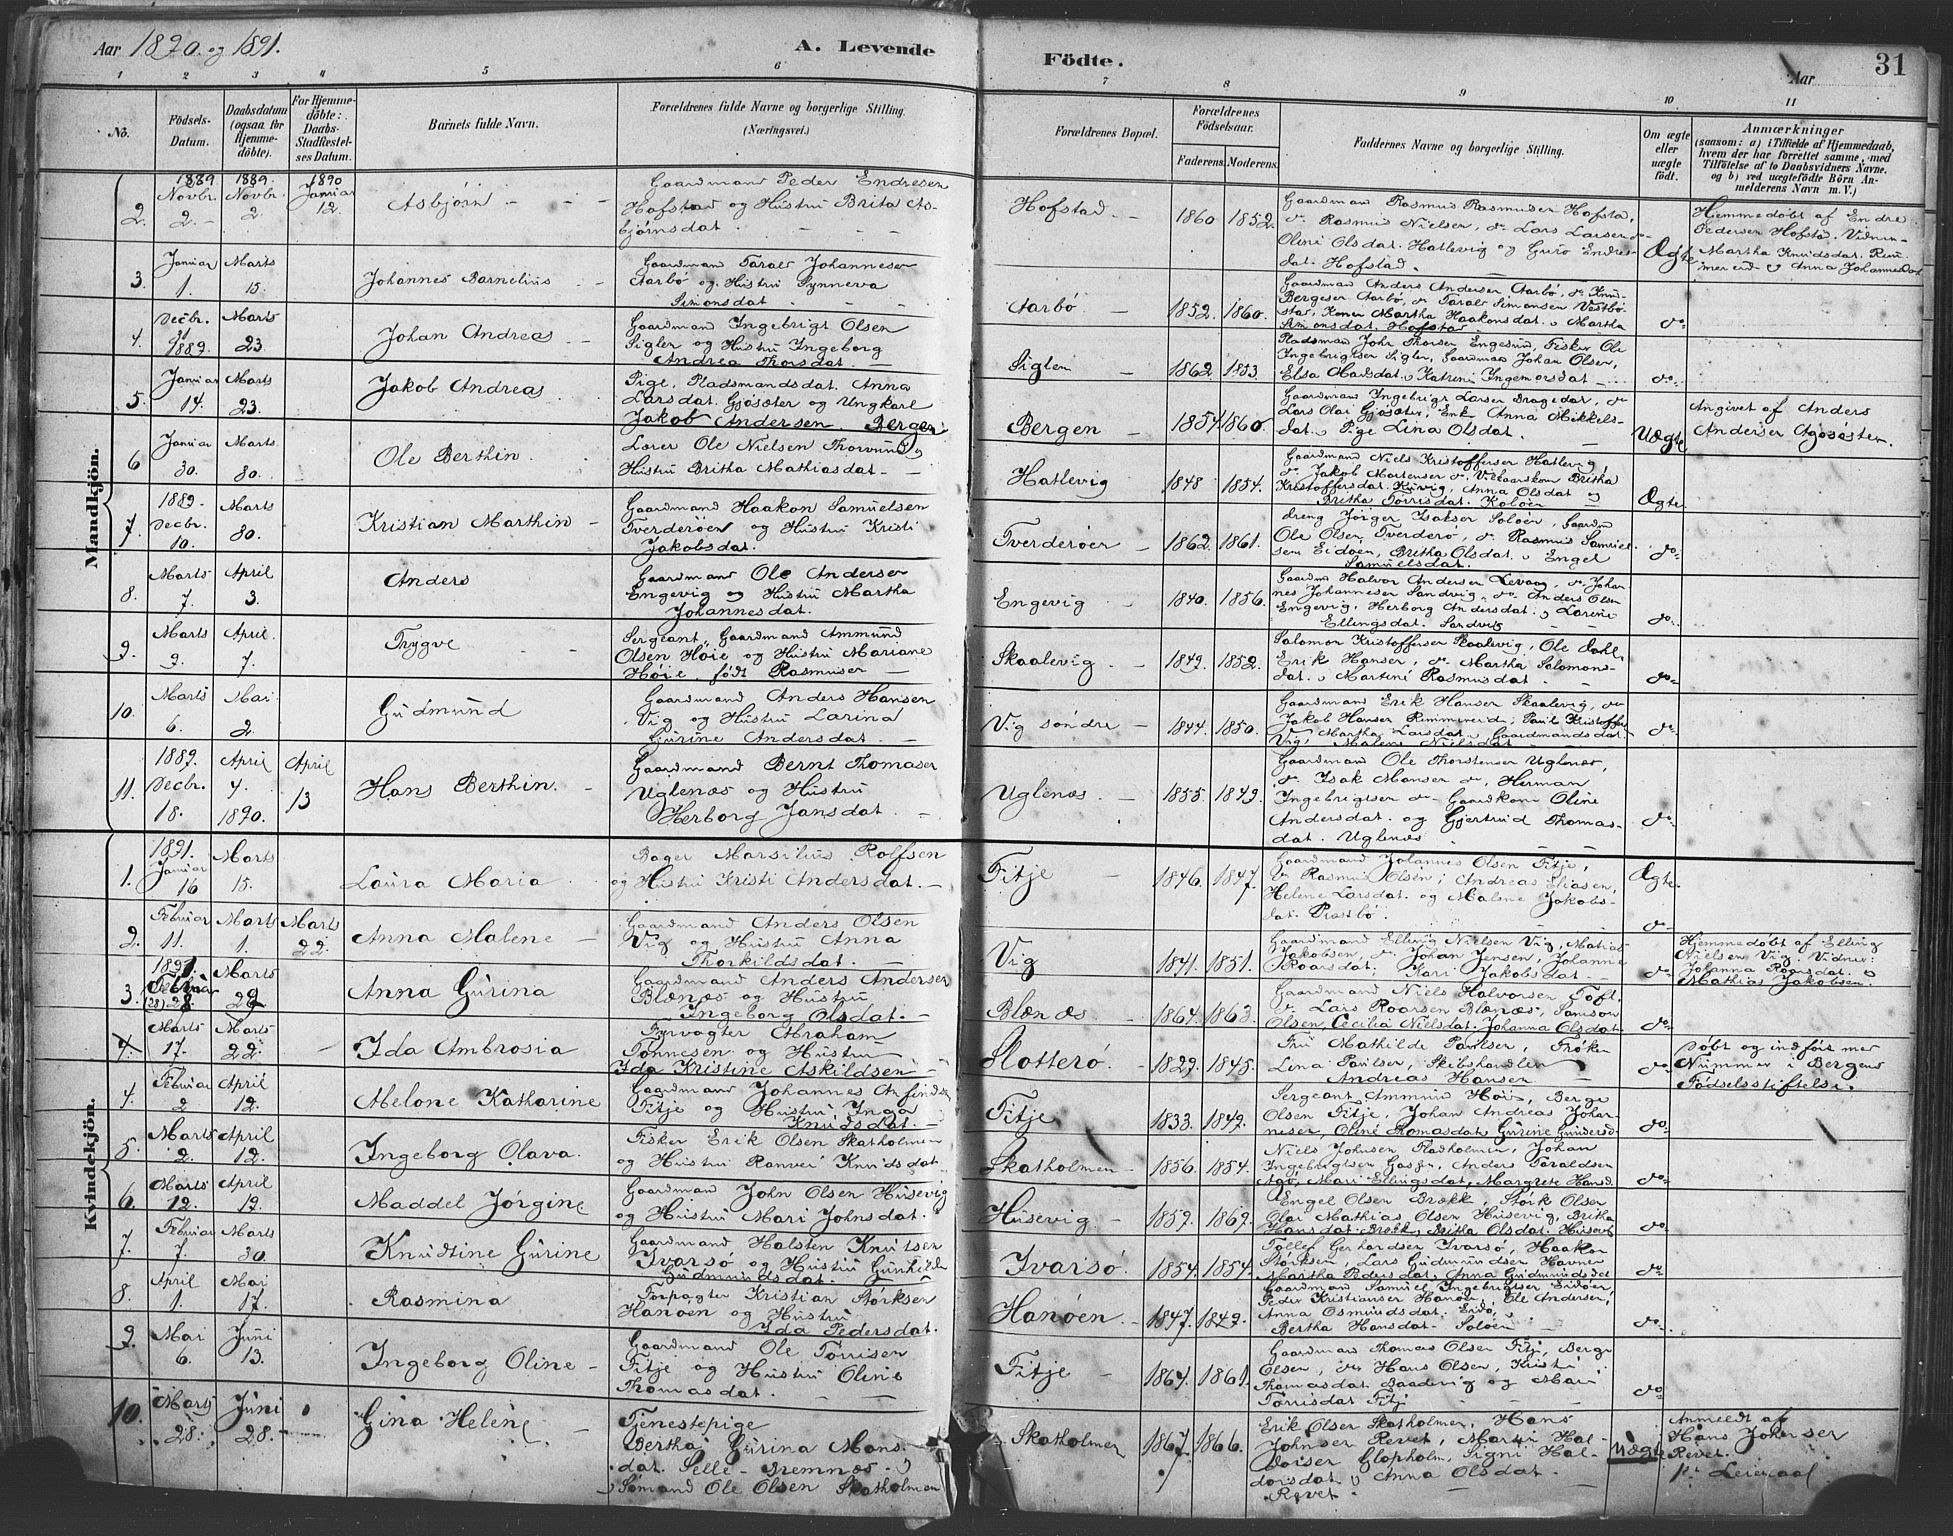 Aar 1890. og 1891.
A. Levende Födte.
Aar
31
1 2 3 4 5 6 7 8 9 10 11
No.
Födsels-Datum.
Daabsdatum (ogsaa for Hjemmedöbte).
For Hjemmedöbte: Daabs-Stadfæstelses Datum.
Barnets fulde Navn.
Forældrenes fulde Navne og borgerlige Stilling. (Næringsvei.)
Forældrenes Bopæl.
Forældrenes Födselsaar.
Faderens. Moderens.
Faddernes Navne og borgerlige Stilling.
Om ægte eller uægte födt.
Anmærkninger
(saasom: a) i Tilfælde af Hjemmedaab, hvem der har forrettet samme, med Tilföielse af to Daabsvidners Navne. og b) ved uægtefödte Börn Anmelderens Navn m. V.)
Mandkjön.
2. 1889 Novbr. 2. 1889. Novbr. 2. 1890 Januar 12. Asbjörn
Gaardmand Peder Endresen
Hofstad og Hustru Brita As-
bjørnsdat.
Hofstad. 1860 1852.
Gaardmand Rasmus Rasmusen Hofsta,
do Rasmus Nielsen, do Lars Larsen do
Oline Olsdat. Hatlevig og Guro Endres-
dat. Hofstad.
Ægte
Hjemmedøbt af Endre
Pedersen Hofstad. Vidner
Martha Knudsdat. Rem-
mereid og Anna Johannesdat
3. Januar 1. Marts 15. Johannes Bornelius
Gaardmand Taral Johannesen
Aarbö og Hustru Synneva
Simonsdat
Aarbö 1852. 1860.
Gaardmand Anders Andersen Aarbö, do Knud
Bergesen Aarbö, do Taral Simonsen Vestbö-
stad, Konen Martha Haakonsdat. Martha
Simonsdat. Hofstad
do
4. Decbr. 31 1889. Marts 23. Johan Andreas
Gaardmand Ingebrigt Olsen
Sigler og Hustru Ingeborg
Andrea Thorsdat.
Siglen 1862 1853.
Pladsmand John Thorsen Engesund, Fisker Ole
Ingebrigtsen Sigler, Gaardmand Johan Olsen,
Elsa Madsdat. Katrine Ingemorsdat
do
5. Januar 14. Marts 23. Jakob Andreas
Pige, Pladsmandsdat. Anna
Larsdat. Gjösæter og Ungkarl
Jakob Andersen. Bergen.
Bergen 1857. 1860.
Gaardmand Ingebrigt Larsen Dragedal, do
Lars Olai Gjösæter, Enk. Anna Mikkels-
dat. Pige Lina Olsdat.
Uægte
Angivet af Anders
Andersen Agosöster.
6 Januar 30. Marts. 30. Ole Berthin.
Lærer Ole Nielsen Thorvund og
Hustru Britha Mathiasdat
Hatlevig 1848 1854.
Gaardmand Niels Kristoffersen Hatlevig,
do Jakob Mortensen do Vilkaarskone Britha
Kristoffersdat. Anna Olsdat og
Britha Torrisdat. Koløen
Ægte.
7. 1889. Decbr. 10. Marts 30. Kristian Marthin
Gaardmand Haakon Samuelsen
Tverderöen og Hustru Kristi
Jakobsdat.
Tverderöen 1862. 1861.
Dreng Jörgen Isaksen Soløen, Gaardm
Ole Olsen Tverderö, do Rasmus Samuel-
sen Eidøen, Britha Olsdat. Engel
Samuelsdat.
do
8. Marts 7. April 3. Anders
Gaardmand Ole Andersen
Engevig og Hustru Martha
Johannesdat.
Engevig 1840. 1856.
Gaardm Halvor Andersen Levaag, do Johan
nes Johannesen Sandvig, do Anders Olsen
Engevig, Herborg Andersdat. Larine
Ellingsdat. Sandvig
do
9. Marts 9. April. 7. Trygve
Sergeant, Gaardmand Ammund
Olsen Höie og Hustru Mariane
Höie, født Rasmusen
Skaalevig 1849. 1852.
Salomon Kristoffersen Skaalevig, Ole Dahl,
Erik Hansen, do Martha Salomons-
dat. Martine Rasmusdat
do
10. Marts 6. Mai 2. Gudmund
Gaardmand Anders Hansen
Vig og Hustru Larina
Gurine Andersdat.
Vig søndre 1844. 1850.
Gaardmand Erik Hansen Skaalevig, do
Jakob Hansen Remmereid, Paul Kristoffer
Vig, Martha Larsdat. Gaardmandsdat
Malene Nielsdat
do
11. 1889. Decbr. 18. April 7. 1890. April 13 Hans Berthin.
Gaardmand Bernt Thomasen
Uglenæs og Hustru
Herborg Jansdat.
Uglenæs. 1855. 1849.
Gaardmand Ole Thorstensen Uglenæs,
do Isak Monsen do, Herman
Ingebrigtsen do Gaardkone Oline
Andersdat. og Gjertrud Thomas-
dat. Uglenæs
do
Kvindekjön.
1. 1891. Januar 16 Marts 15. Laura Maria
Bager Marsilius Rolfsen
og Hustru Kristi Andersdat.
Fitje 1846. 1847.
Gaardmand Johannes Olsen Fitje,
do Rasmus Olsen, Andreas Eliasen,
Helene Larsdat. og Malene Jakobs-
dat. Præstbö.
Ægte.
2. Februar 11. Marts 1. Marts 22. Anna Malene
Gaardmand Anders Olsen
Vig og Hustru Anna
Thorkildsdat.
Vig 1841. 1851.
Gaardmand Elling Nielsen Vig, Mathias
Jakobsen, do Johan Jensen, Johanne
Roarsdat. Kari Jakobsdat
do
Hjemmedøbt af Elling
Nielsen Vig. Vidner:
Johanna Roarsdat. og
Mathias Jakobsen.
3. 1891. Februar (28) 28. Marts 29 Anna Gurina
Gaardmand Anders Andersen
Blænæs og Hustru
Ingeborg Olsdat.
Blænæs 1864. 1863.
Gaardmand Niels Halvorsen Toft.
do Lars Roarsen Blænæs, Samson
Olsen, Cecilia Nielsdat. Johanna Olsdat.
do
4. Marts 17. Marts 22. Ida Ambrosia
Fyrvogter Abraham
Tönnesen og Hustru
Ida Kristine Askildsen
Slotterö. 1829. 1845.
Fru Mathilde Paulsen, Frøken
Lina Paulsen, Skibshandler
Andreas Hansen
do
Døbt og indført med
Nummer i Bergens
Fødselsstiftelse.
4. Februar 2. April 12. Melone Katharine
Gaardmand Johannes Anfinds
Fitje og Hustru Inga
Knudsdat.
Fitje 1833. 1849.
Sergeant Ammund Höie, Berge
Olsen Fitje, Johan Andreas Johan-
nesen, Oline Thomasdat, Gurine Gundersd
do
5. Marts 2. April 12. Ingeborg Olava.
Fisker Erik Olsen Skatholmen
og Hustru Ranvei Knudsdat
Skatholmen 1856. 1854.
Niels Johnsen Fladholmen, Johan
Ingebrigtsen Anders Taraldsen
Mari Ellingsdat, Margrete Hansd.
do
6. Marts 12. April 19. Maddel Jörgine
Gaardmand John Olsen Husevig
og Hustru Mari Johnsdat.
Husevig 1859. 1869.
Engel Olsen Brækk, Störk Olsen
Olai Mathias Olsen Husevig, Britha
Hansdat. Bræk, Britha Olsdat. Husevik
do
7. Februar 7. Marts 30. Knudtine Gurine
Gaardmand Halsten Knutsen
Ivarsö og Hustru Gunhild
Gudmundsdat.
Ivarsö. 1854. 1854.
Tollef Gerhardsen Ivarsö, Haakon
Störksen, Lars Gudmundsen Havner
Martha Pedersdat. Anna Gudmundsdat
do
8. April 1. Mai 17. Rasmina
Forpagter Kristian Størksen
Hanøen og Hustru
Ida Pedersdat.
Hanöen. 1847. 1849.
Gaardmand Samuel Ingebrigtsen Eidøen
Peder Kristiansen Hanøen, Ole Andersen,
Anna Osmundsdat. Eidø,
Bertha Hansdat. Soløen
do
9. Mai 6. Juni 13. Ingeborg Oline
Gaardmand Ole Torrisen
Fitje og Hustru Oline
Thomasdat.
Fitje 1864. 1861.
Gaardman Thomas Olsen Fitje, Berge
Olsen, do Hans Olsen, Kristi
Thomasdat. Baadevig og Mari
Torrisdat Fitj
do
10. Marts 28. Juni 28. Gina Helene
Tjenestepige
Bertha Gurina Mons-
dat. Selle - Bremnæs
Sømand Ole Olsen Skatholmen
Skatholmen 1867. 1866.
Erik Olsen Skatholmen, Hans
Johnsen Revet, Martin Hal-
dorsen Glopholm, Signi Hal-
dorsdat Anna Olsdat.
Revet
Uægte
Anmeldt af
Hans Johnsen
Revet.
1ste Leiermaal